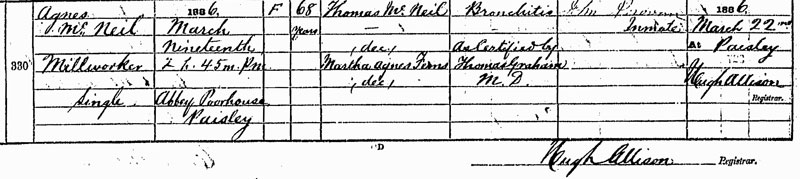 Agnes 1886 F 68 Thomas Mc Neil Bronchitis 1886.
Mc Neil March years — — Inmate March 22nd
Nineteenth (dec) As Certified by At Paisley
330 Millworker 7 h. 45 m. P.m. Martha Agnes Thomas Graham
(dec) M.D. Hugh Allison
Single Abbey Poorhouse Registrar.
Paisley
D
Hugh Allison Registrar.